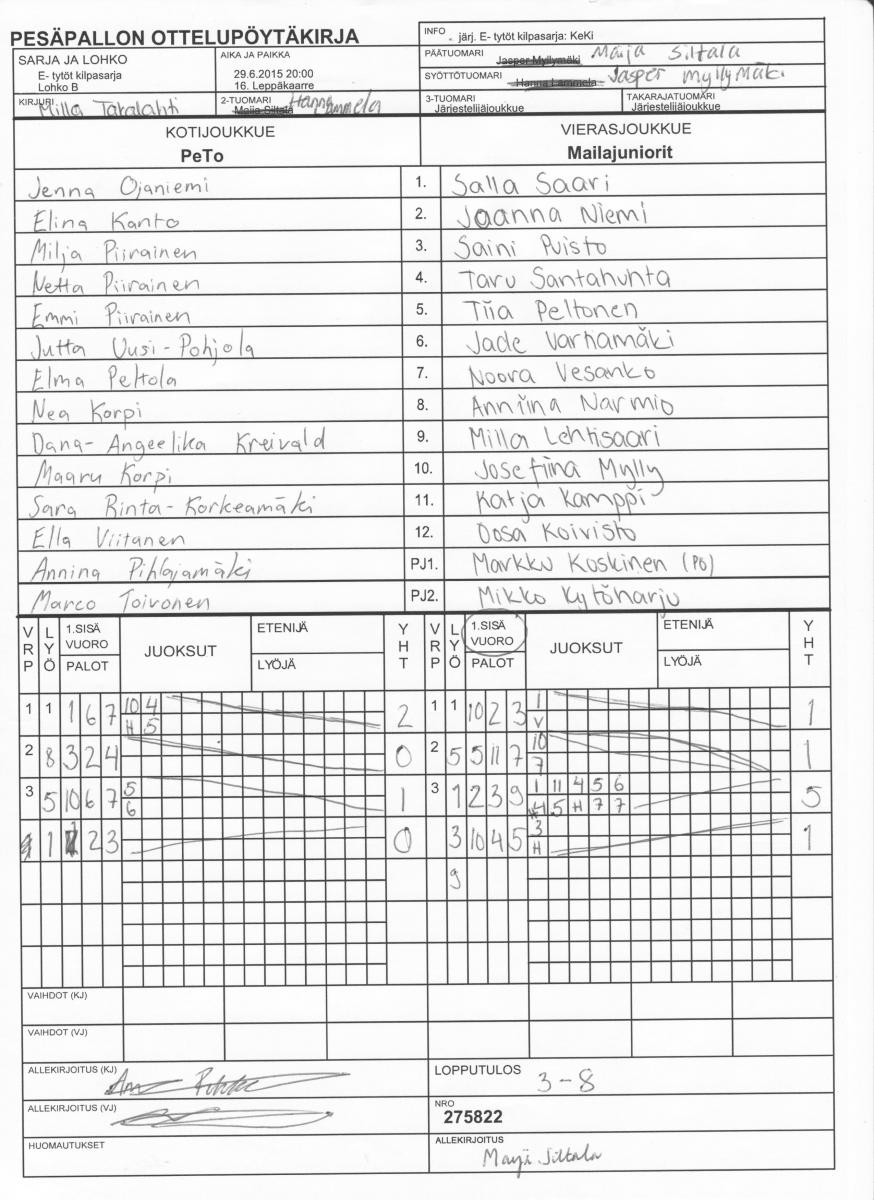 PESÄPALLON OTTELUPÖYTÄKIRJA
INFO . järj. E- tytöt kilpasarja: KeKi
SARJA JA LOHKO
E- tytöt kilpasarja
Lohko B
AIKA JA PAIKKA
29.6.2015 20:00
16. Leppäkaarre
PÄÄTUOMARI Jasper Myllymäki Maija Siltala
SYÖTTÖTUOMARI Hanna Lammela Jasper Myllymäki
KIRJURI Milla Taralahti
2-TUOMARI Maija Siltala Hanna Lammela
3-TUOMARI
Järjestelijäjoukkue
TAKARAJATUOMARI
Järjestelijäjoukkue
KOTIJOUKKUE VIERASJOUKKUE
PeTo Mailajuniorit
Jenna Ojaniemi 1. Salla Saari
Elina Kanto 2. Joanna Niemi
Milja Piirainen 3. Saini Puisto
Netta Piirainen 4. Taru Santahuhta
Emmi Piirainen 5. Tiia Peltonen
Jutta Uusi-Pohjola 6. Jade Varhamäki
Elma Peltola 7. Noora Vesanko
Nea Korpi 8. Anniina Narmio
Dana-Angeelika Kreivald 9. Milla Lehtisaari
Maaru Korpi 10. Josefiina Mylly
Sara Rinta-Korkeamäki 11. Katja Kamppi
Ella Viitanen 12. Oosa Koivisto
Annina Pihlajamäki PJ1. Markku Koskinen (PÖ)
Marco Toivonen PJ2. Mikko Kytöharju
VRP LYÖ 1.SISÄ VUORO PALOT JUOKSUT ETENIJÄ LYÖJÄ YHT VRP LYÖ 1.SISÄ VUORO PALOT JUOKSUT ETENIJÄ LYÖJÄ YHT
1 1 1 6 7 10 4 2 1 1 10 2 3 1 1
H 5 V
2 8 3 2 4 0 2 5 5 11 7 10 1
7
3 5 10 6 7 5 1 3 1 2 3 9 1 11 4 5 6 5
6 H 5 H 7 7
1 2 3 0 3 10 4 5 3 1
H
9
VAIHDOT (KJ)
VAIHDOT (VJ)
ALLEKIRJOITUS (KJ)
LOPPUTULOS 3-8
ALLEKIRJOITUS (VJ)
NRO
275822
HUOMAUTUKSET
ALLEKIRJOITUS
Maija Siltala